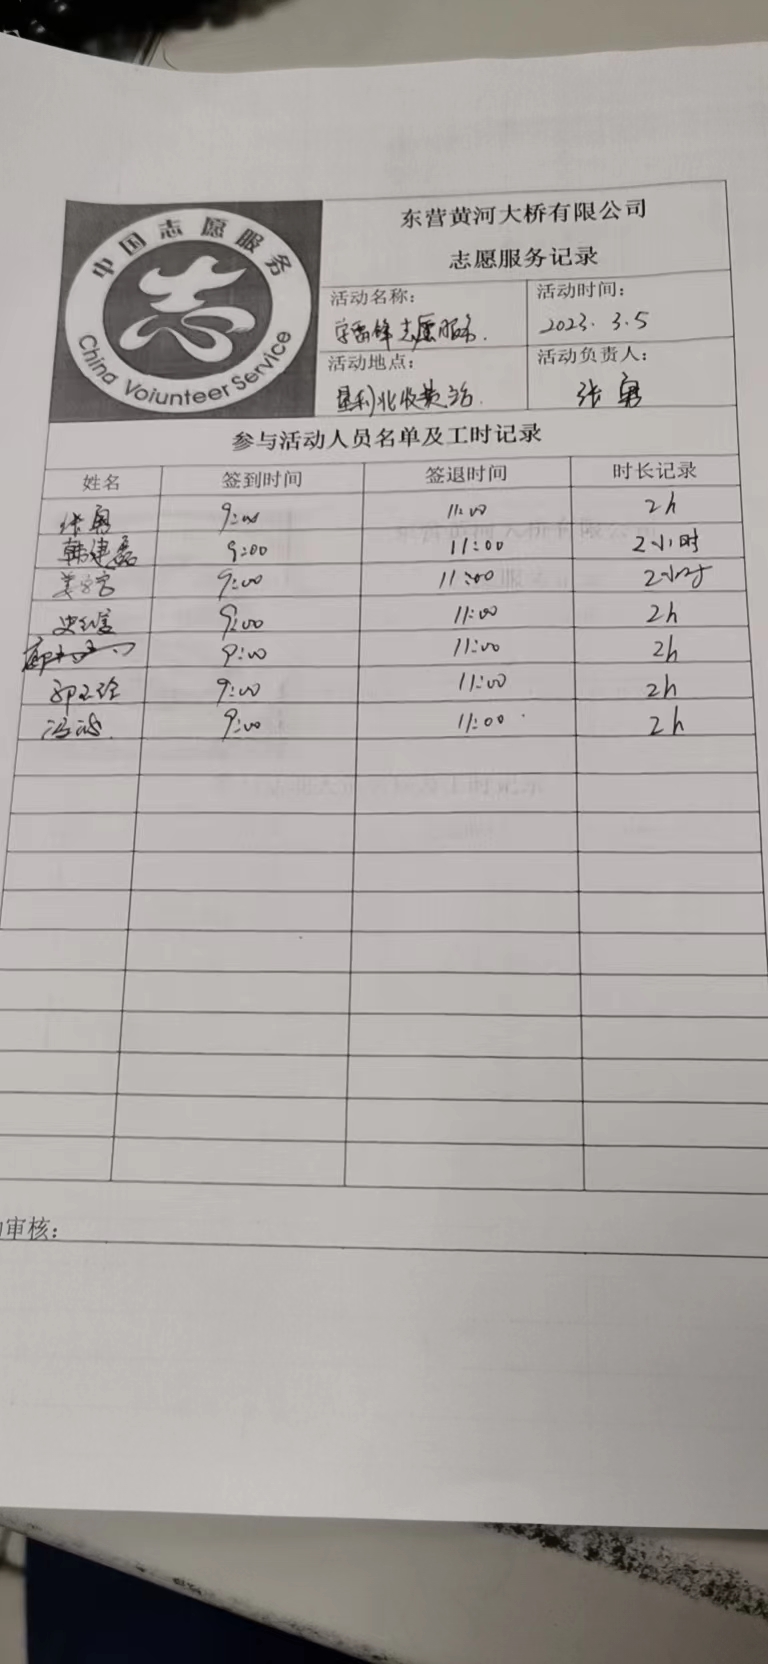 中国志愿服务
志
China Voiunteer Service
东营黄河大桥有限公司
志愿服务记录
活动名称:
学雷锋志愿服务.
活动时间:
2023. 3.5
活动地点:
垦利北收费站.
活动负责人:
张勇
参与活动人员名单及工时记录
姓名 签到时间 签退时间 时长记录
张勇 9:00 11:00 2h
韩建磊 9:00 11:00 2小时
9:00 11:00 2小时
9:00 11:00 2h
9:00 11:00 2h
9:00 11:00 2h
9:00 11:00 2h
审核: